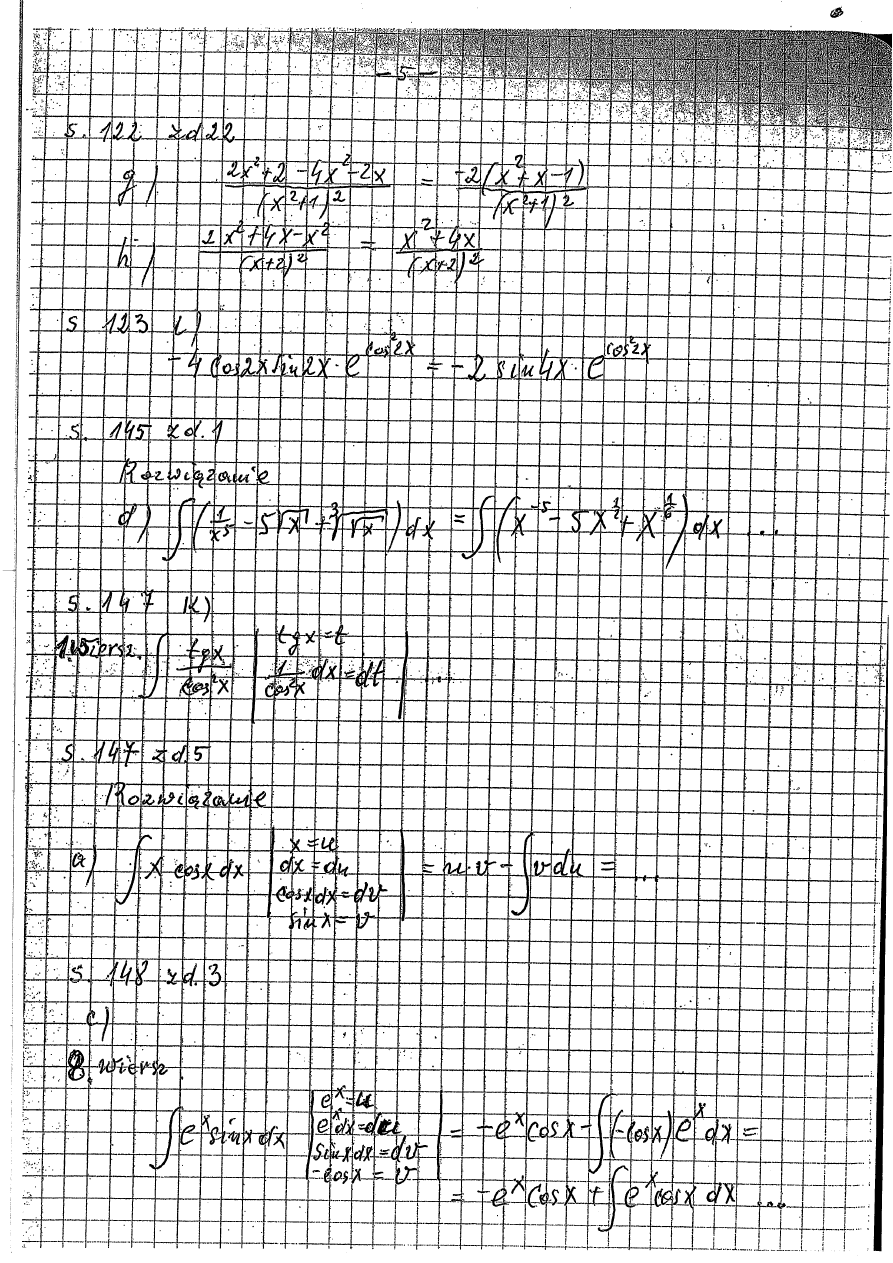 - 5 -
s. 122 zd 22
g) (2x²+2-4x²-2x)/(x²+1)² = -2(x²+x-1)/(x²+1)²
h) (2x²+4x-x²)/(x+2)² = (x²+4x)/(x+2)²
s 123 l)
-4 cos2x sin2x · e^(cos²2x) = -2 sin4x · e^(cos²2x)
s. 145 zd. 1
Rozwiązanie
d) ∫(1/x⁵ - 5√x + ³√(√x)) dx = ∫(x⁻⁵ - 5x^(1/2) + x^(1/6)) dx ...
s. 147 k)
wiersz. ∫ tgx/cos²x | tgx = t
1/cos²x dx = dt | ...
s. 147 zd. 5
Rozwiązanie
a) ∫ x cosx dx | x = u
dx = du
cosx dx = dv
sinx = v | = u·v - ∫ v du = ...
s. 148 zd. 3
c)
8. wiersz
∫ eˣ sinx dx | eˣ = u
eˣ dx = du
sinx dx = dv
-cosx = v | = -eˣ cosx - ∫(-cosx) eˣ dx =
= -eˣ cosx + ∫ eˣ cosx dx ...